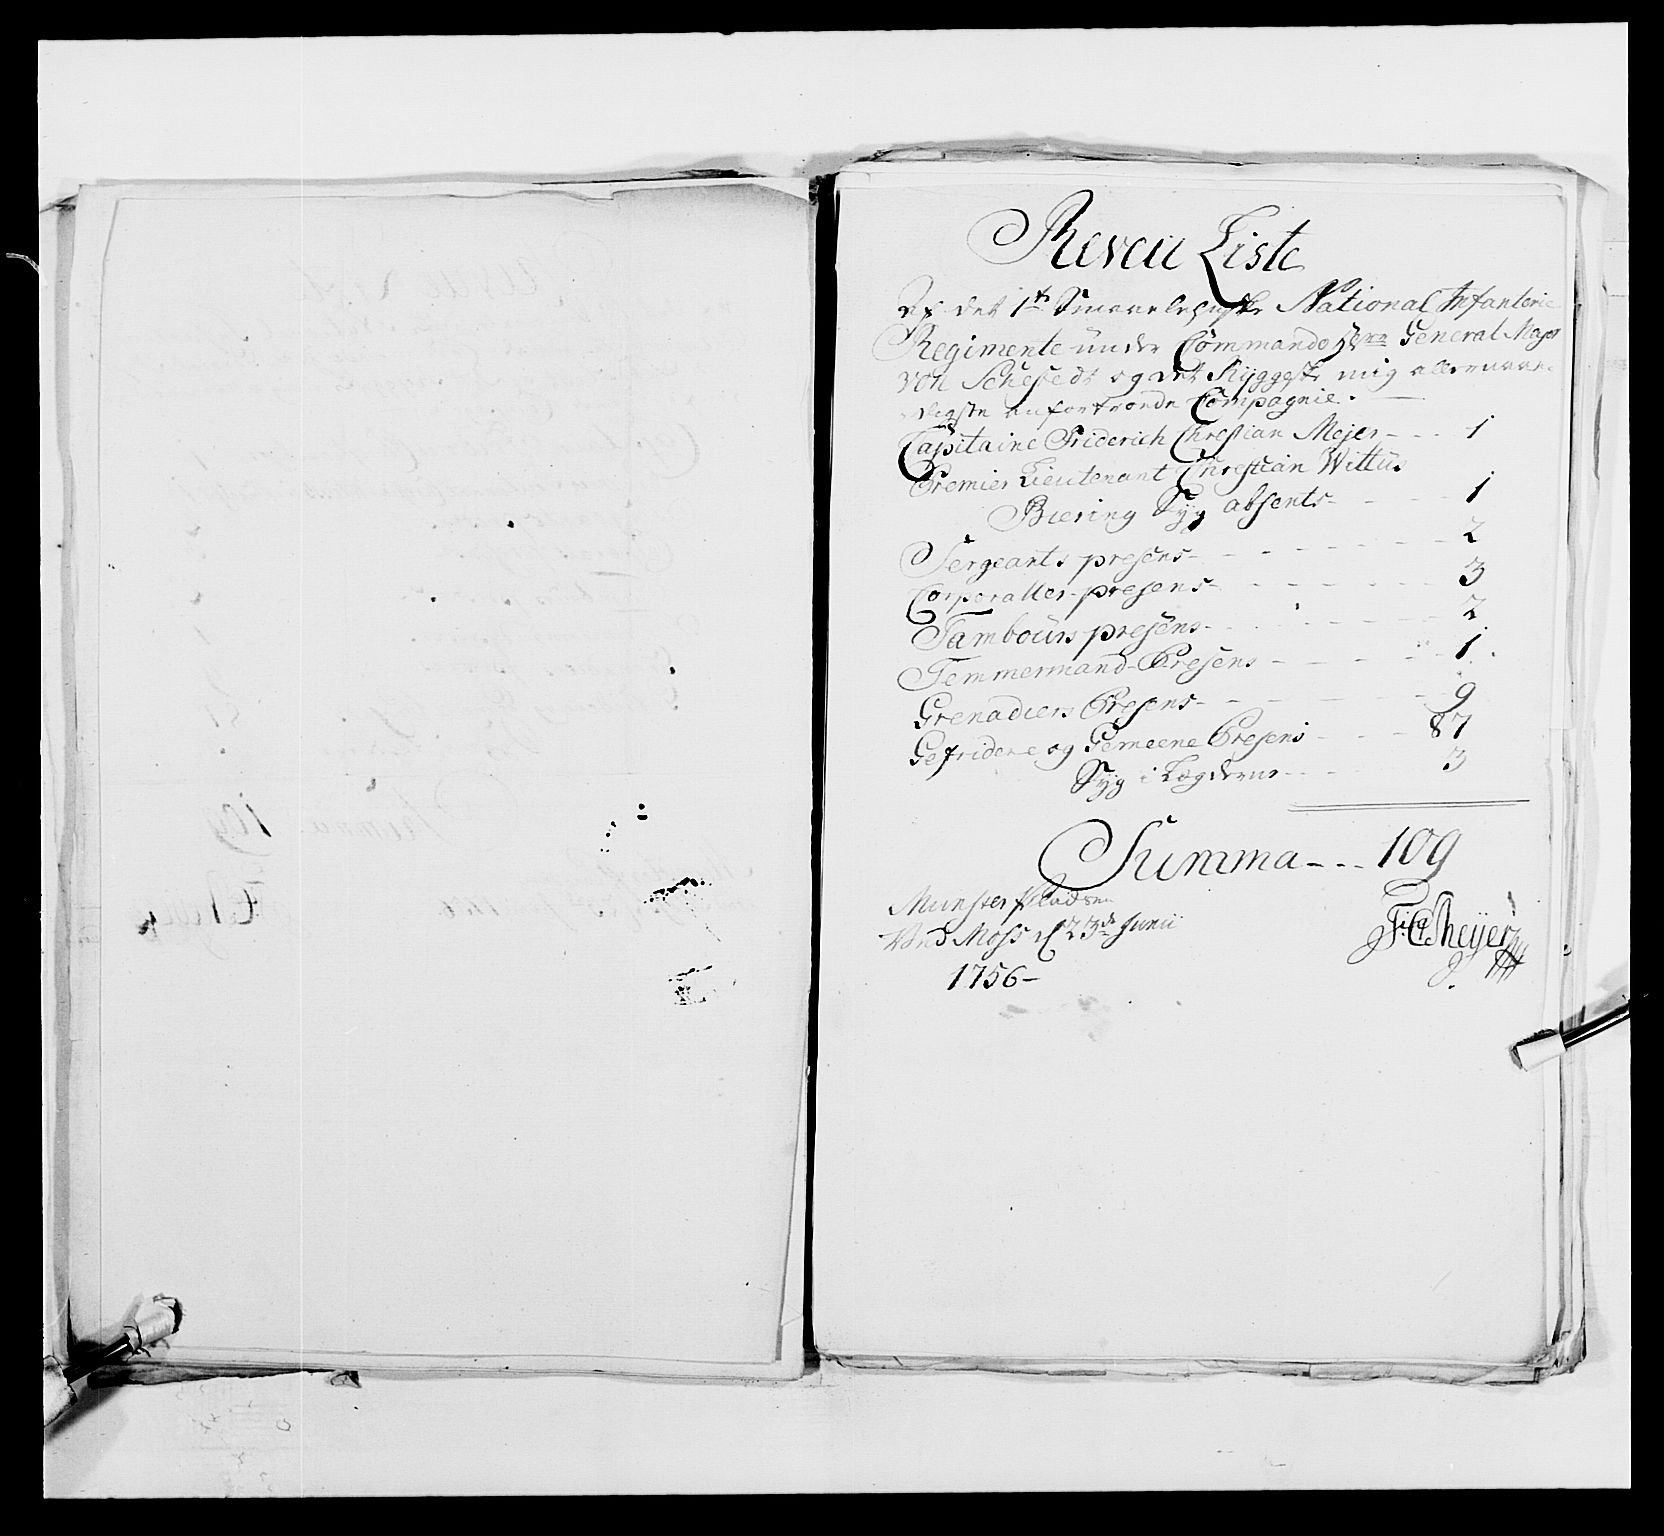 Reveu Liste
Af det 1te Smaalehnske National Infanterie
Regimente under Commando Herr General Major
von Schestedt og det Ryggeste mig allernaa-
digste anfortroede Compagnie.
Capitaine Friderich Chrestian Mejer - - - 1
Premier Lieutenant Chrestian Wittus
Biering Syg absents - - - - 1
Sergeants presens - - - - - - - 2
Corporaller presens - - - - - - 3
Tambours presens - - - - - - - 2
Temmermand Presens - - - - - 1
Grenadiers Presens - - - - - - 9
Gefridere og Gemeene Presens - - - - 87
Syg i Lægderne - - - - - 3
Summa - - - 109
Munster Pladsen
Ved Moss d 23de Junii
1756 -
FCMeijer